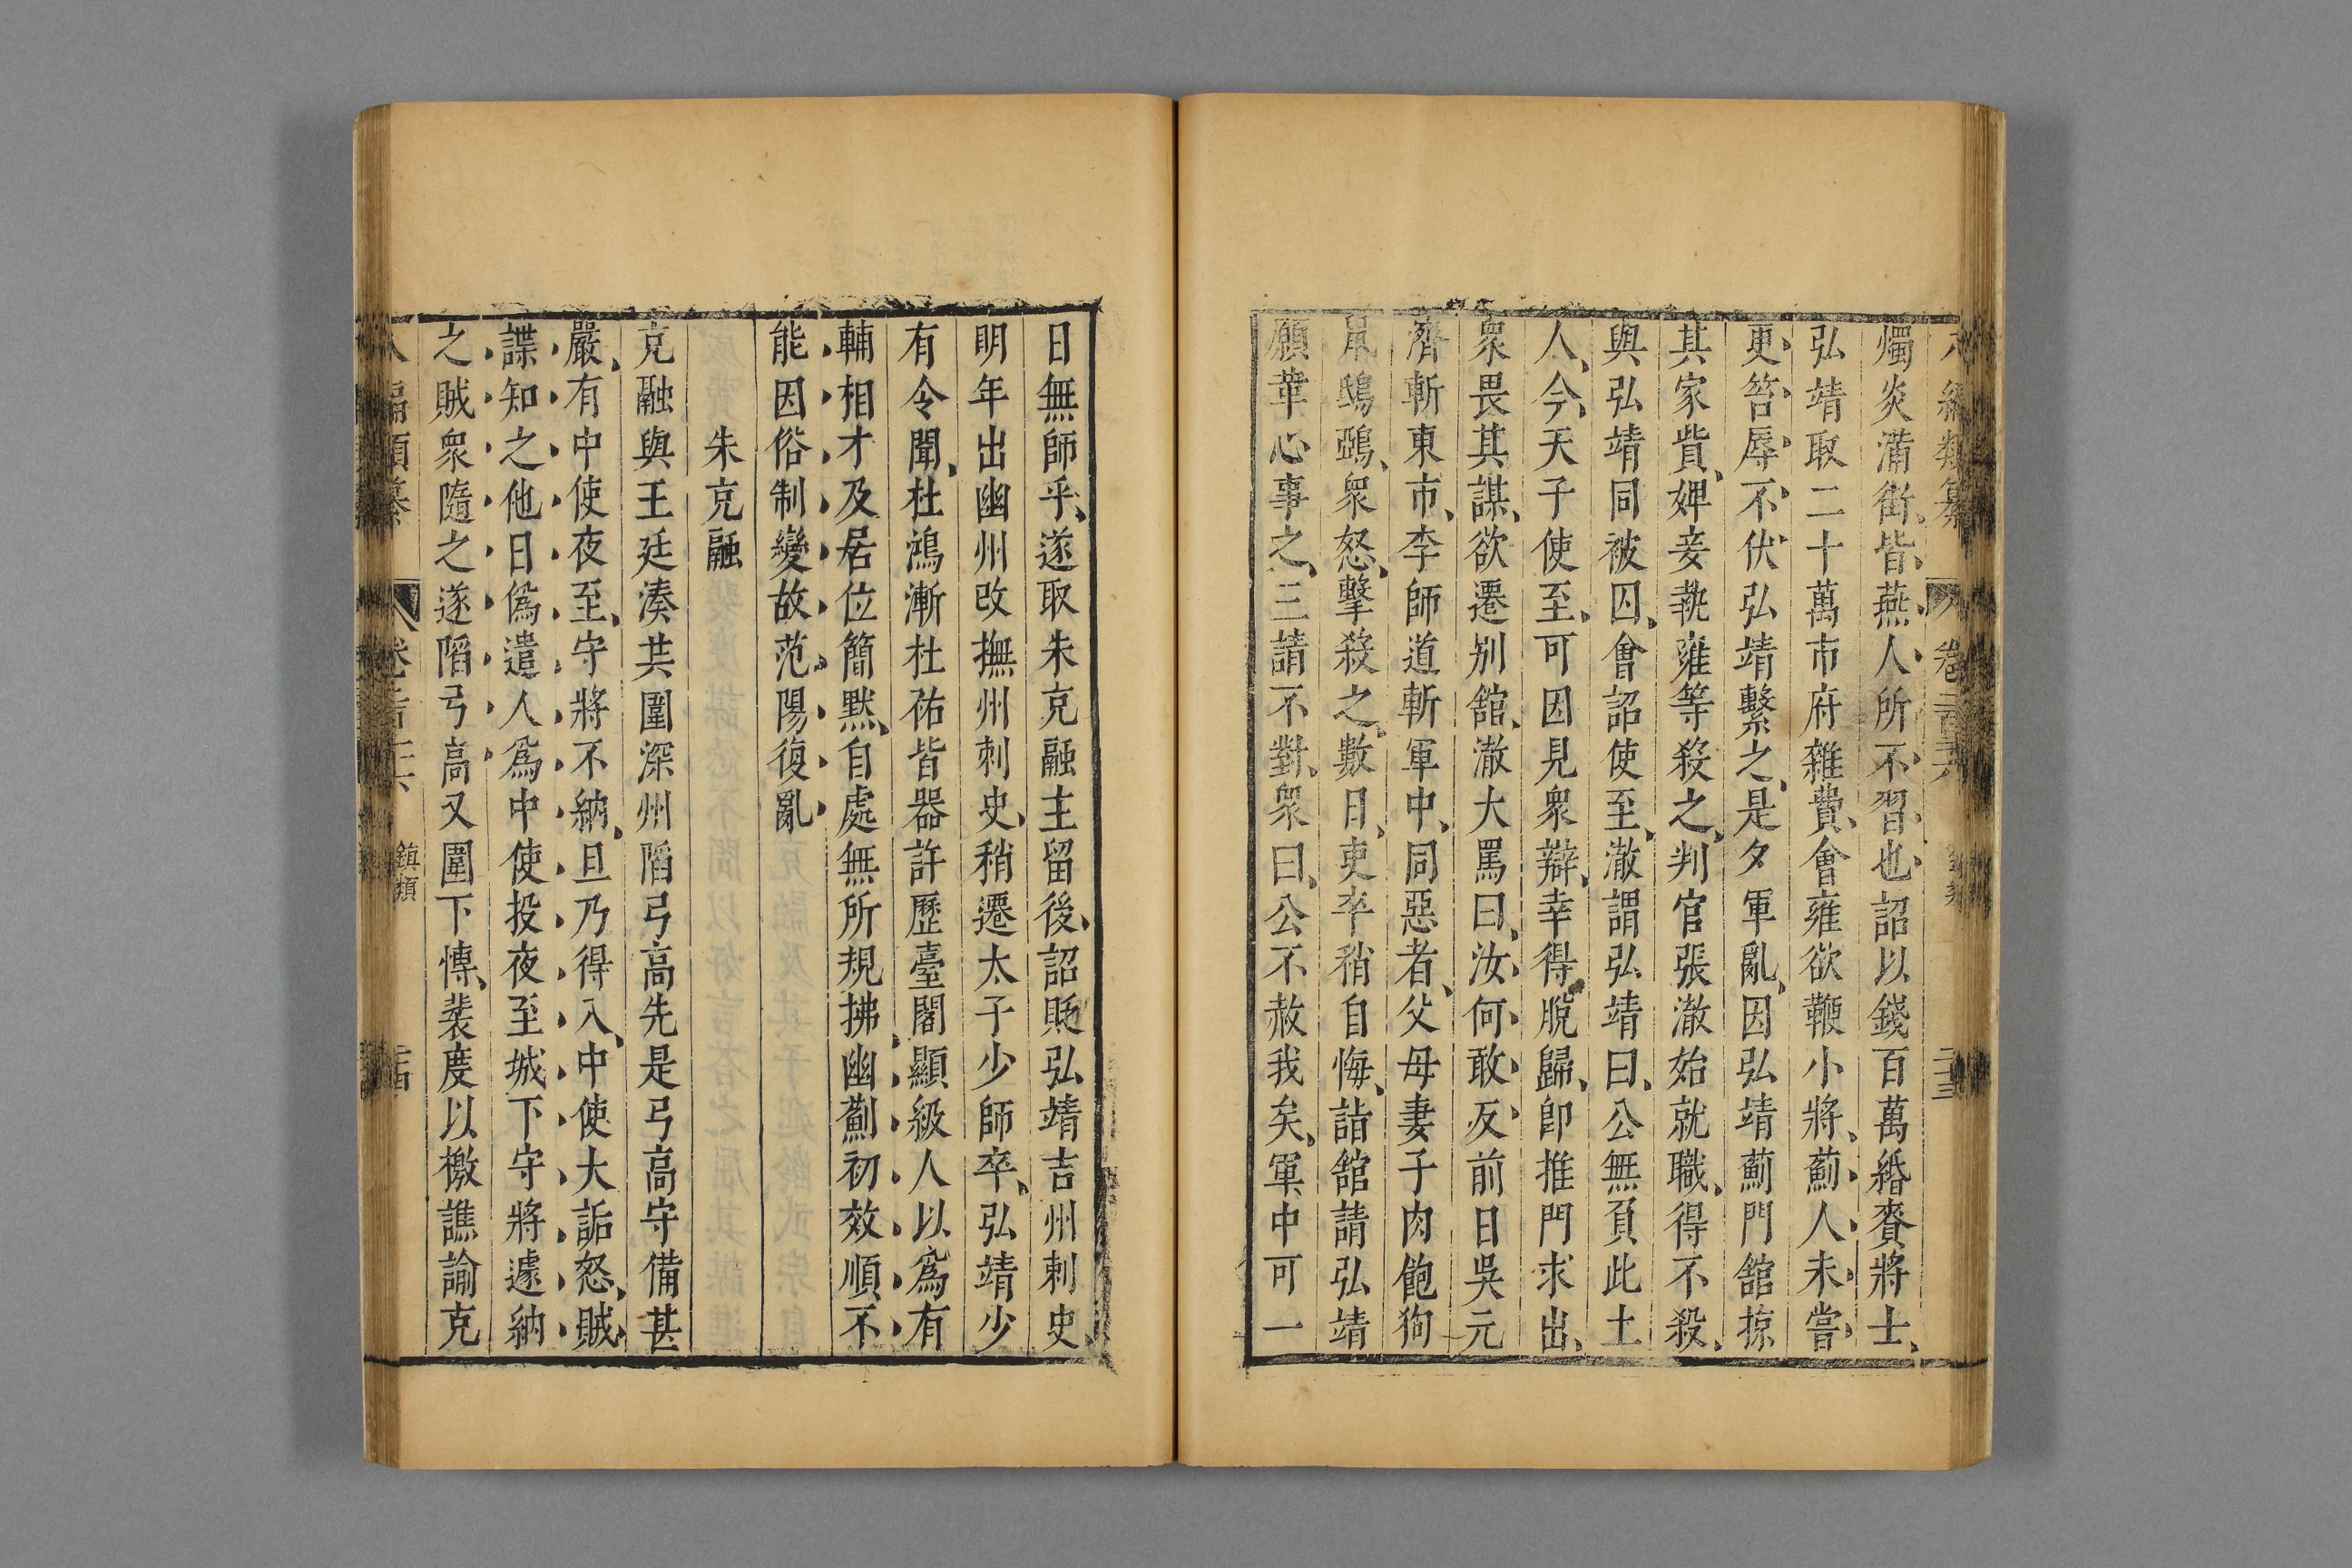 編類纂 卷二百二十六 鎮類 二十三
燭炎滿街皆燕人所不習也詔以錢百萬緡賚將士
弘靖取二十萬市府雜費會雍欲鞭小將薊人未嘗
更笞辱不伏弘靖繫之是夕軍亂因弘靖薊門舘掠
其家貲婢妾執雍等殺之判官張澈始就職得不殺
與弘靖同被囚會詔使至澈謂弘靖曰公無負此土
人今天子使至可因見衆辯幸得脫歸卽推門求出
衆畏其謀欲遷别舘澈大罵曰汝何敢反前日吳元
濟斬東市李師道斬軍中同惡者父母妻子肉飽狗
鼠鴟鵶衆怒擊殺之數日吏卒稍自悔詣舘請弘靖
願革心事之三請不對衆曰公不赦我矣軍中可一
日無師乎遂取朱克融主留後詔貶弘靖吉州刺史
明年出幽州改撫州刺史稍遷太子少師卒弘靖少
有令聞杜鴻漸杜祐皆器許歷臺閣顯級人以爲有
輔相才及居位簡默自處無所規拂幽薊初效順不
能因俗制變故范陽復亂
朱克融
克融與王廷湊共圍深州䧟弓高先是弓高守備甚
嚴有中使夜至守將不納旦乃得入中使大詬怒賊
諜知之他日僞遣人爲中使投夜至城下守將遽納
之賊衆隨之遂䧟弓高又圍下博裴度以檄譙諭克
八編類纂 卷二百二十六 鎮類 二十四